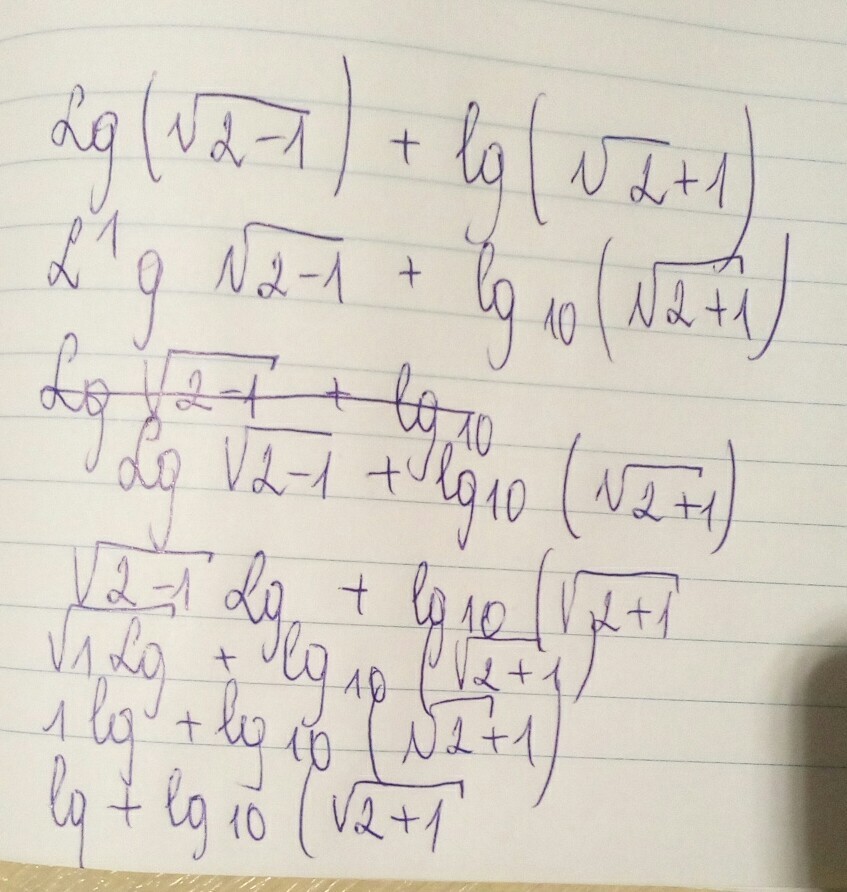 Lg(√2-1) + lg(√2+1)
L¹g √2-1 + lg₁₀(√2+1)
Lg √2-1 + lg₁₀
Lg √2-1 + lg₁₀ (√2+1)
√2-1 Lg + lg₁₀ (√2+1
√1 Lg + lg₁₀ (√2+1)
1 lg + lg₁₀ (√2+1)
lg + lg₁₀ (√2+1